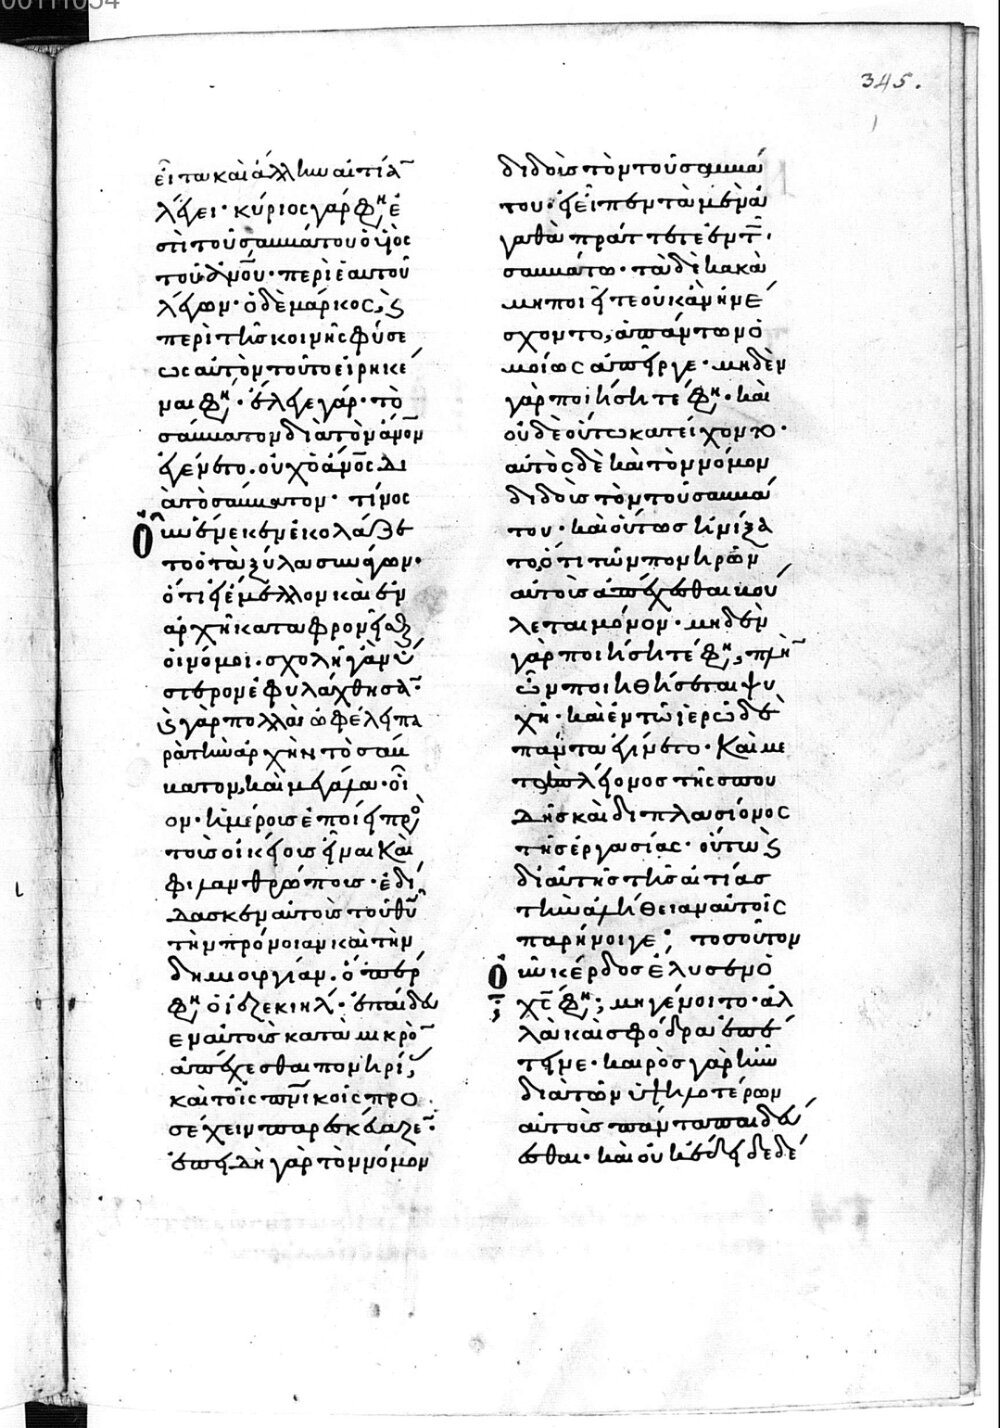 345.
εἶτα καὶ ἄλλην αἰτίαν
λέγει· κύριος γάρ φη, ἐ
στὶ τοῦ σαββάτου ὁ υἱὸς
τοῦ ἀνου· περὶ ἑαυτοῦ
λέγων· ὁ δὲ μάρκος, καὶ
περὶ τῆς κοινῆς φύσε
ως αὐτὸν τοῦτο εἰρηκέ
ναι φη· ἔλεγε γάρ· τὸ
σάββατον διὰ τὸν ἄνον
ἐγένετο. οὐχ ὁ ἄνος δι
ὰ τὸ σάββατον· τίνος
οὖν ἕνεκεν ἐκολάζε
το ὁ τὰ ξύλα συνάγων·
ὅτι εἰ ἔμελλον καὶ ἐν
ἀρχῇ καταφρονεῖσθαι
οἱ νόμοι. σχολῇ γ' ἂν ὕ
στερον ἐφυλάχθησαν·
καὶ γὰρ πολλὰ ὠφέλει πα
ρὰ τὴν ἀρχὴν τὸ σάβ
βατον, καὶ μεγάλα· οἷ
ον· ἡμέρους ἐποίει πρὸς
τοὺς οἰκείους εἶναι καὶ
φιλανθρώπους· ἐδί
δασκεν αὐτοὺς τοῦ θυ
τὴν πρόνοιαν καὶ τὴν
δημιουργίαν. ὅπερ
φη ὁ ἰεζεκιήλ· ἐπαίδευ
εν αὐτοὺς κατὰ μικρὸν
ἀπέχεσθαι πονηρίας,
καὶ τοῖς πνικοῖς προ
σέχειν παρεσκεύαζεν·
ἐπειδὴ γὰρ τὸν νόμον
διδοὺς τὸν τοῦ σαββά
του· εἰ εἶπεν τὰ μὲν ἀ
γαθὰ πράττετε ἐν τῶ
σαββάτω· τὰ δὲ κακὰ
μὴ ποιεῖτε οὐκ ἂν ἠνέ
σχοντο, ἁπάντων ὁ
μοίως ἀπεῖργε· μηδὲν
γὰρ ποιήσητέ φη· καὶ
οὐδὲ οὕτω κατείχοντο·
αὐτὸς δὲ καὶ τὸν νόμον
διδοὺς τὸν τοῦ σαββά
του· καὶ οὕτως ἠνίξα
το, ὅτι τῶν πονηρῶν
αὐτοὺς ἀπέχεσθαι βού
λεται μόνον· μηδὲν
γὰρ ποιήσητέ φη, πλὴν
ὧν ποιηθήσεται ψυ
χῇ· καὶ ἐν τῶ ἱερῶ δὲ
πάντα ἐγίνετο· καὶ με
τὰ πλείονος τῆς σπου
δῆς καὶ διπλασίονος
τῆς ἐργασίας· οὕτω καὶ
δι' αὐτῆς τῆς αἰτίας
τὴν ἀλήθειαν αὐτοῖς
παρήνοιγε· τοσοῦτον
οὖν κέρδος ἔλυσεν ὁ
χς φη; μὴ γένοιτο· ἀλ
λὰ καὶ σφόδρα ἐπέ
τεινε· καιρὸς γὰρ ἦν
διὰ τῶν ὑψηλοτέρων
αὐτοὺς πάντα παιδεύ
εσθαι· καὶ οὐκ ἔδει δεδέ